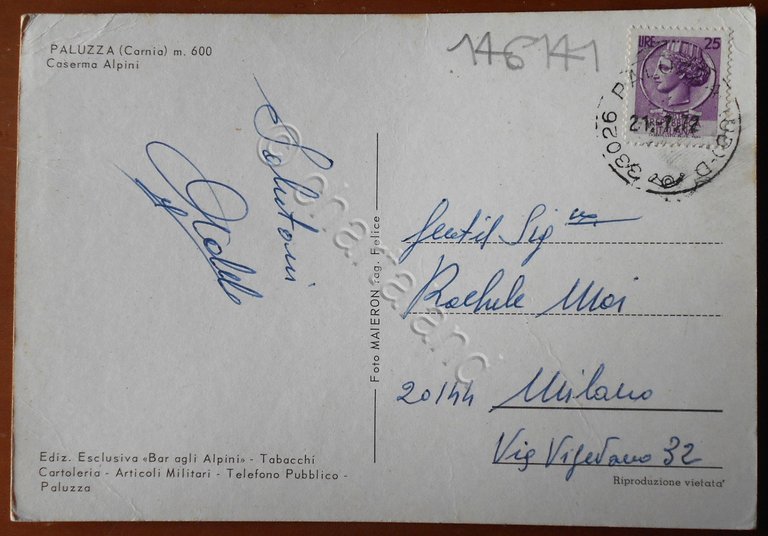 PALUZZA (Carnia) m. 600
Caserma Alpini
146141
LIRE 25
21-7-72
33026 PAL
Salutoni
Foto MAIERON rag. Felice
Gentil Sig.na
Rachele Moi
20144 Milano
Via Vigevano 32
Ediz. Esclusiva «Bar agli Alpini» - Tabacchi
Cartoleria - Articoli Militari - Telefono Pubblico -
Paluzza
Riproduzione vietata